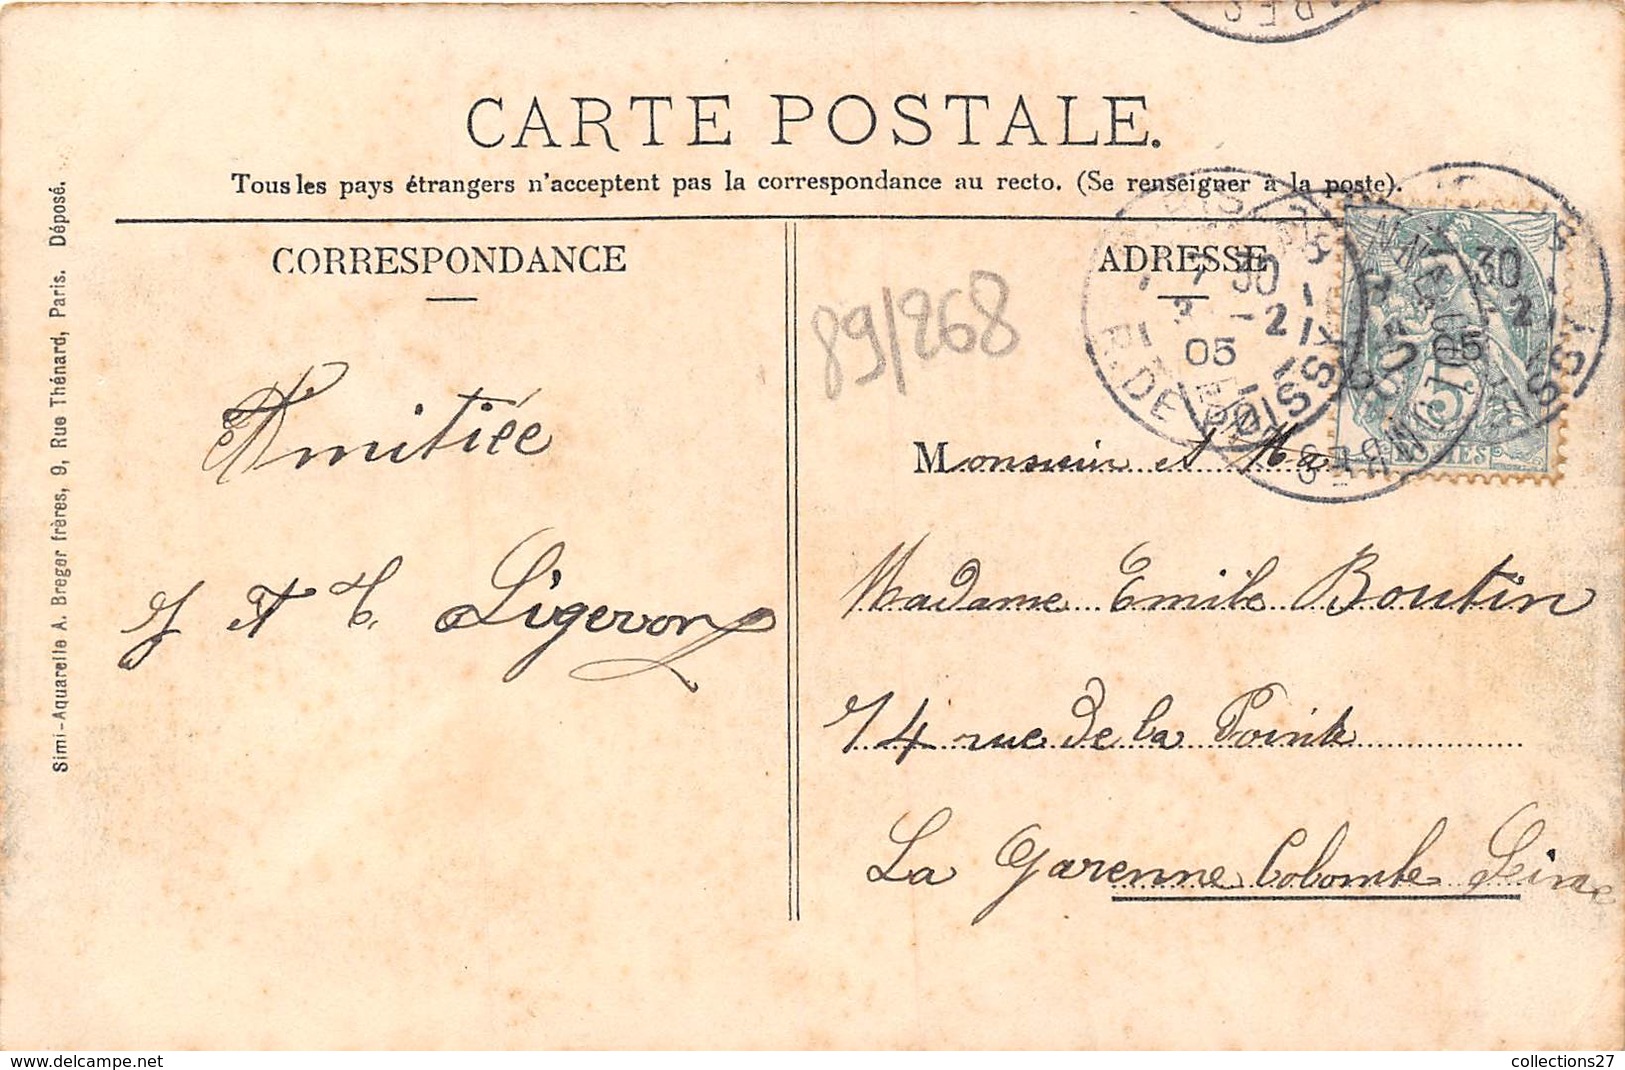 CARTE POSTALE.
Tous les pays étrangers n'acceptent pas la correspondance au recto. (Se renseigner à la poste).
CORRESPONDANCE
ADRESSE
Simi-Aquarelle A. Breger frères, 9, Rue Thénard, Paris. Déposé.
89/268
Amitiée
J et C. Ligeron
Monsieur et Ma
Madame Emile Boutin
14 rue de la Pointe
La Garenne Colombe Seine
7 30
2 -2
05
R. DE
POISSY
30
2
05
5
POSTES
delcampe.net
collections27